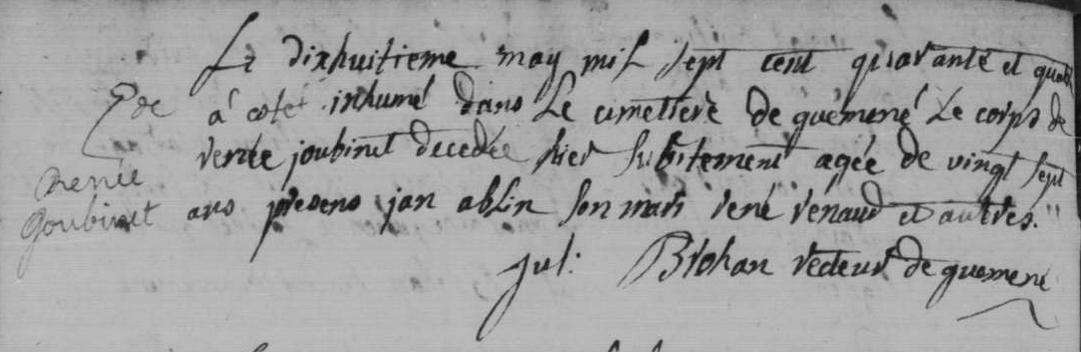 Le dixhuitieme may mil sept cent quarante et quatre
á esté inhumé dans Le cimettiere de guémené Le corps de
renée joubinet decedée hier subitement agée de vingt sept
ans presens jan ablin son mari rené renaud et autres.
jul: Brohan recteur de guemené
S de
renée
joubinet